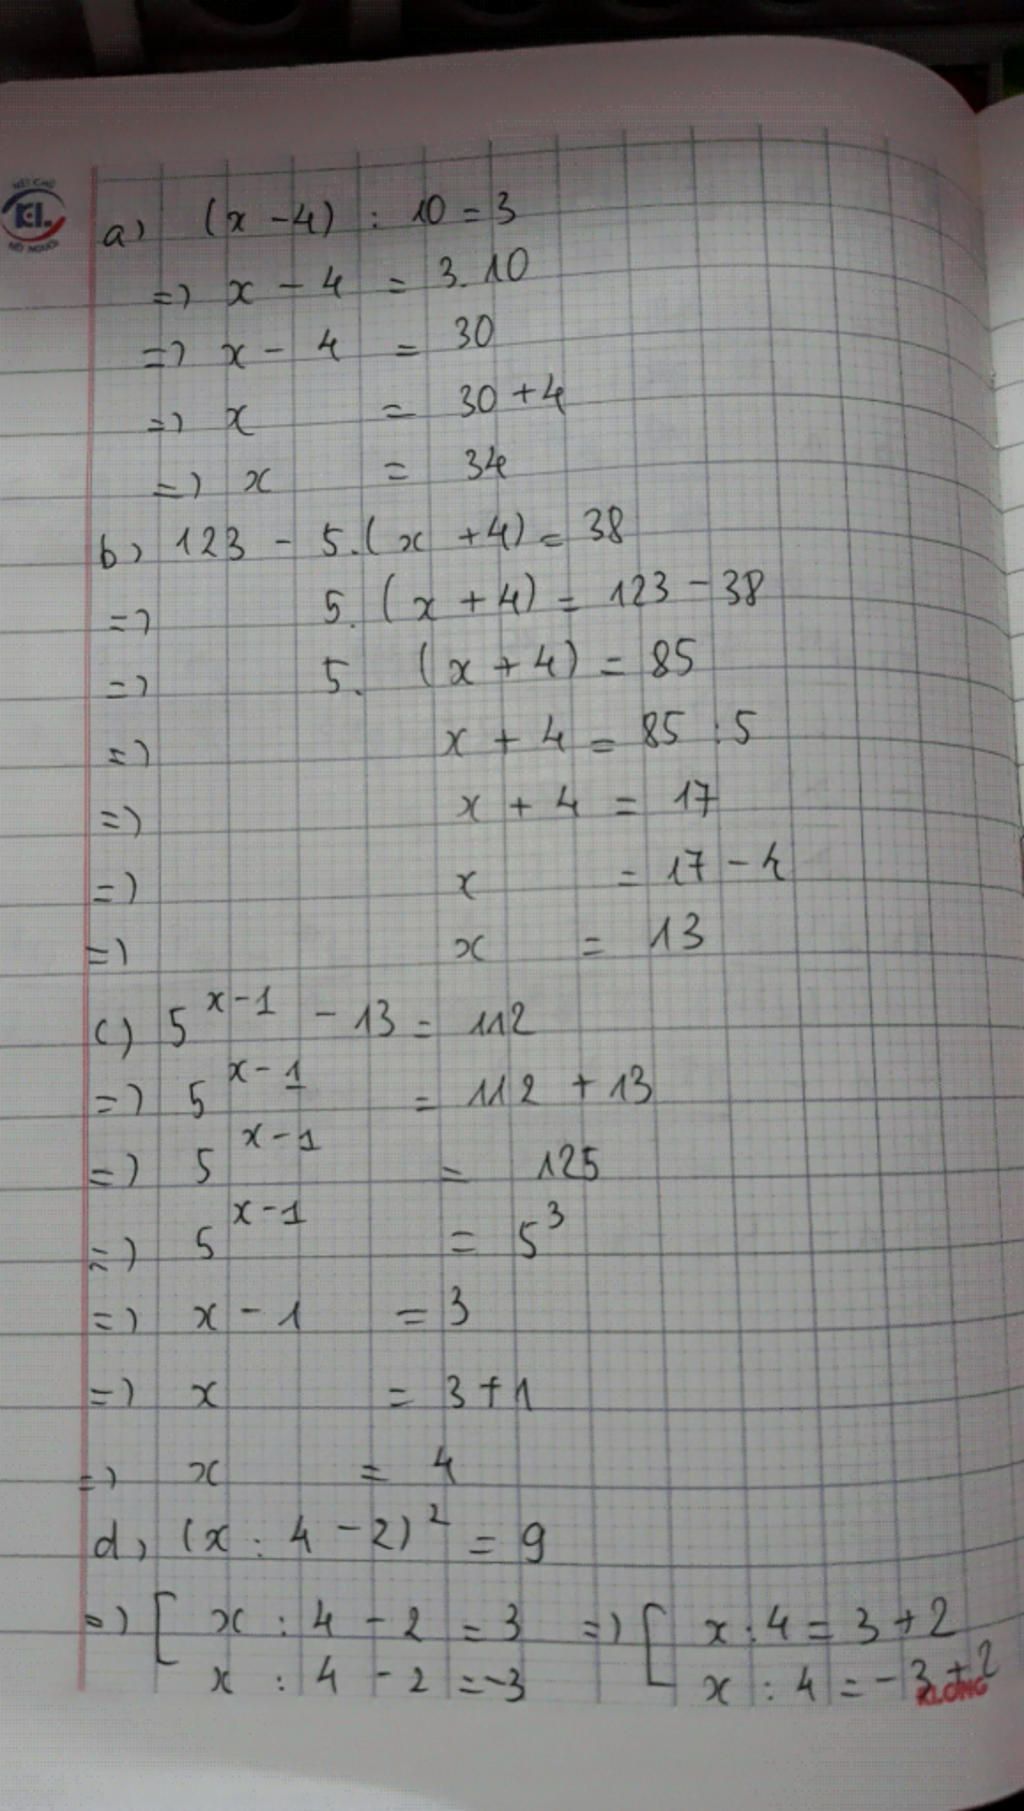 NÉT CHỮ
KL
NẾT NGƯỜI
a) (x - 4) : 10 = 3
=) x - 4 = 3.10
=) x - 4 = 30
=) x = 30 + 4
=) x = 34
b) 123 - 5.(x + 4) = 38
=) 5.(x + 4) = 123 - 38
=) 5. (x + 4) = 85
=) x + 4 = 85 : 5
=) x + 4 = 17
=) x = 17 - 4
=) x = 13
c) 5^(x-1) - 13 = 112
=) 5^(x-1) = 112 + 13
=) 5^(x-1) = 125
=) 5^(x-1) = 5³
=) x - 1 = 3
=) x = 3 + 1
=) x = 4
d) (x : 4 - 2)² = 9
=) [ x : 4 - 2 = 3 =) [ x : 4 = 3 + 2
x : 4 - 2 = -3 x : 4 = -3 + 2
KLONG